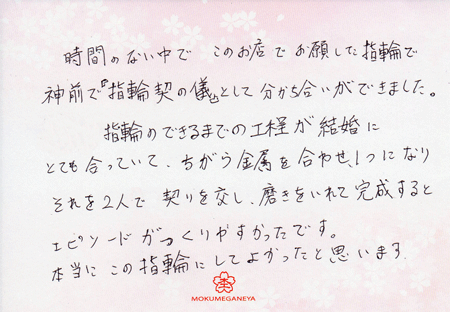 時間のない中で このお店でお願した指輪で
神前で『指輪契の儀』として分かち合いができました。
指輪のできるまでの工程が結婚に
とても合っていて、ちがう金属を合わせ、1つになり
それを2人で 契りを交し、磨きをいれて完成すると
エピソードがつくりやすかったです。
本当にこの指輪にしてよかったと思います
MOKUMEGANEYA